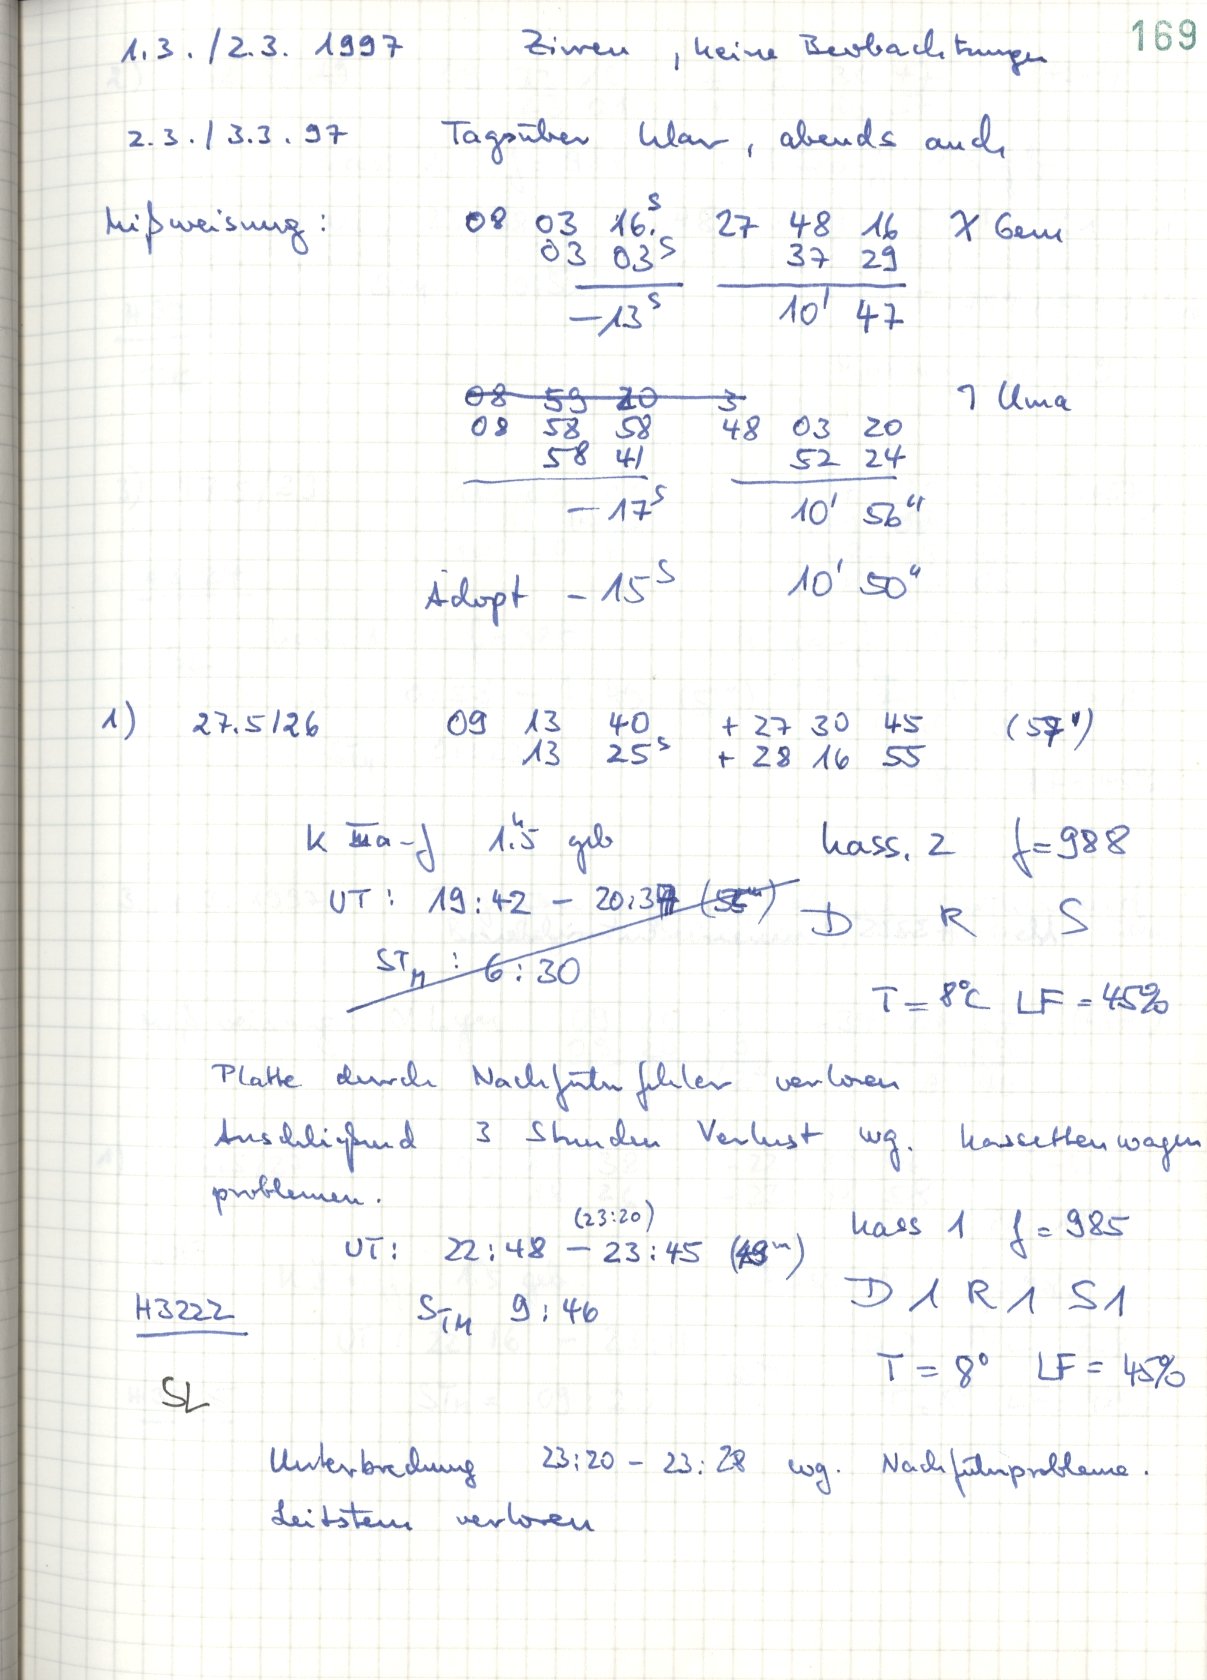 169
1.3./2.3. 1997 Zirren, keine Beobachtungen
2.3./3.3.97 Tagsüber klar, abends auch
Mißweisung: 08 03 16.ˢ 27 48 16 χ Gem
03 03ˢ 37 29
-13ˢ 10' 47
08 59 20 3
08 58 58 48 03 20 ι Uma
58 41 52 24
-17ˢ 10' 56"
Adopt -15ˢ 10' 50"
1) 27.5/26 09 13 40 + 27 30 45 (57")
13 25ˢ + 28 16 55
K IIIa-J 1.ʰ5 geb Kass. 2 f=988
UT: 19:42 - 20:37 D R S
STM: 6:30
T=8°C LF=45%
Platte durch Nachführfehler verloren
Anschließend 3 Stunden Verlust wg. Kassettenwagen
problemen.
(23:20)
UT: 22:48 - 23:45 (49ᵐ) Kass 1 f=985
H3222 STM 9:46 D1 R1 S1
T=8° LF=45%
SL
Unterbrechung 23:20 - 23:28 wg. Nachführprobleme.
Leitstern verloren